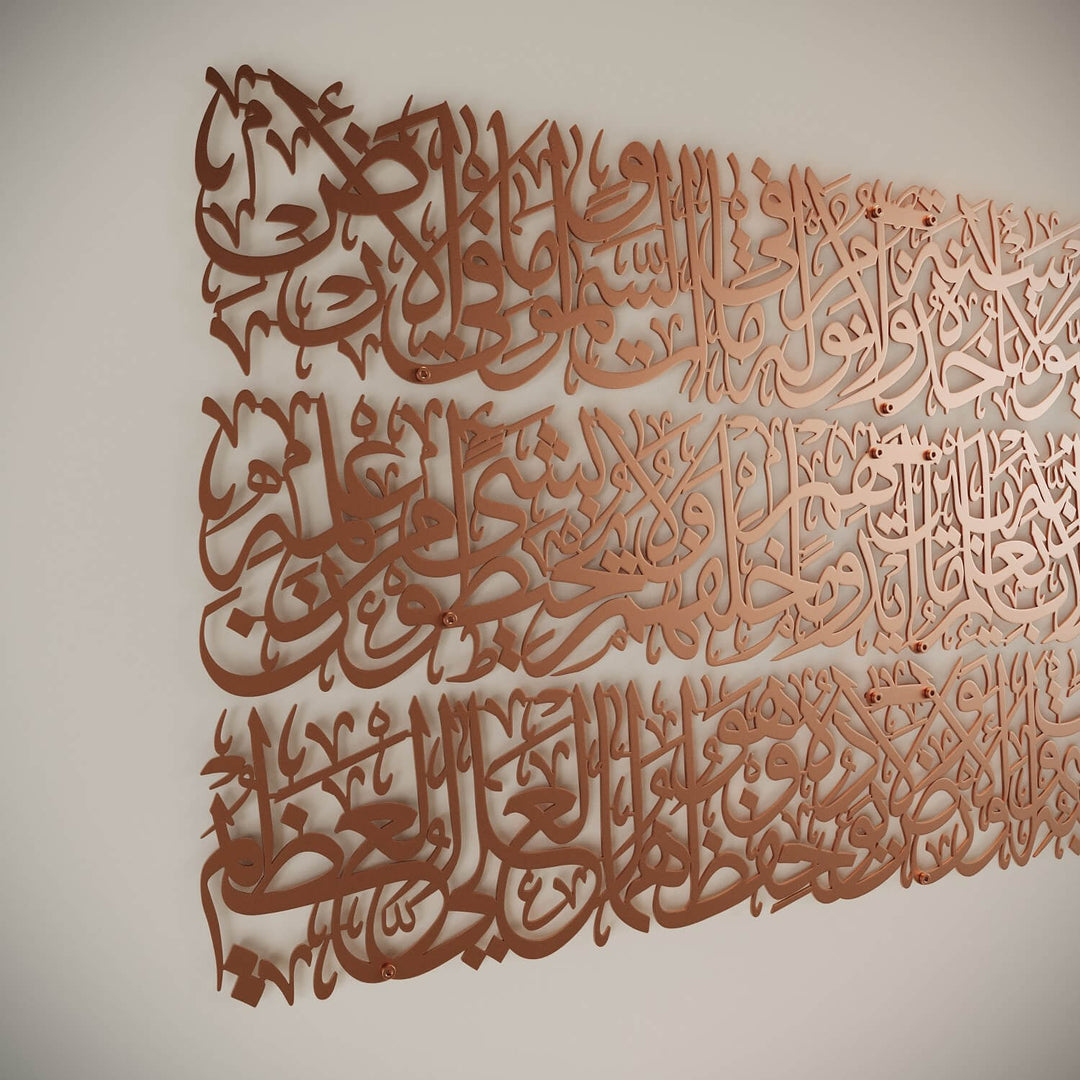 سنة ولا نوم له ما في السموات وما في الأرض
يعلم ما بين أيديهم وما خلفهم ولا يحيطون بشيء من علمه
والأرض ولا يؤده حفظهما وهو العلي العظيم